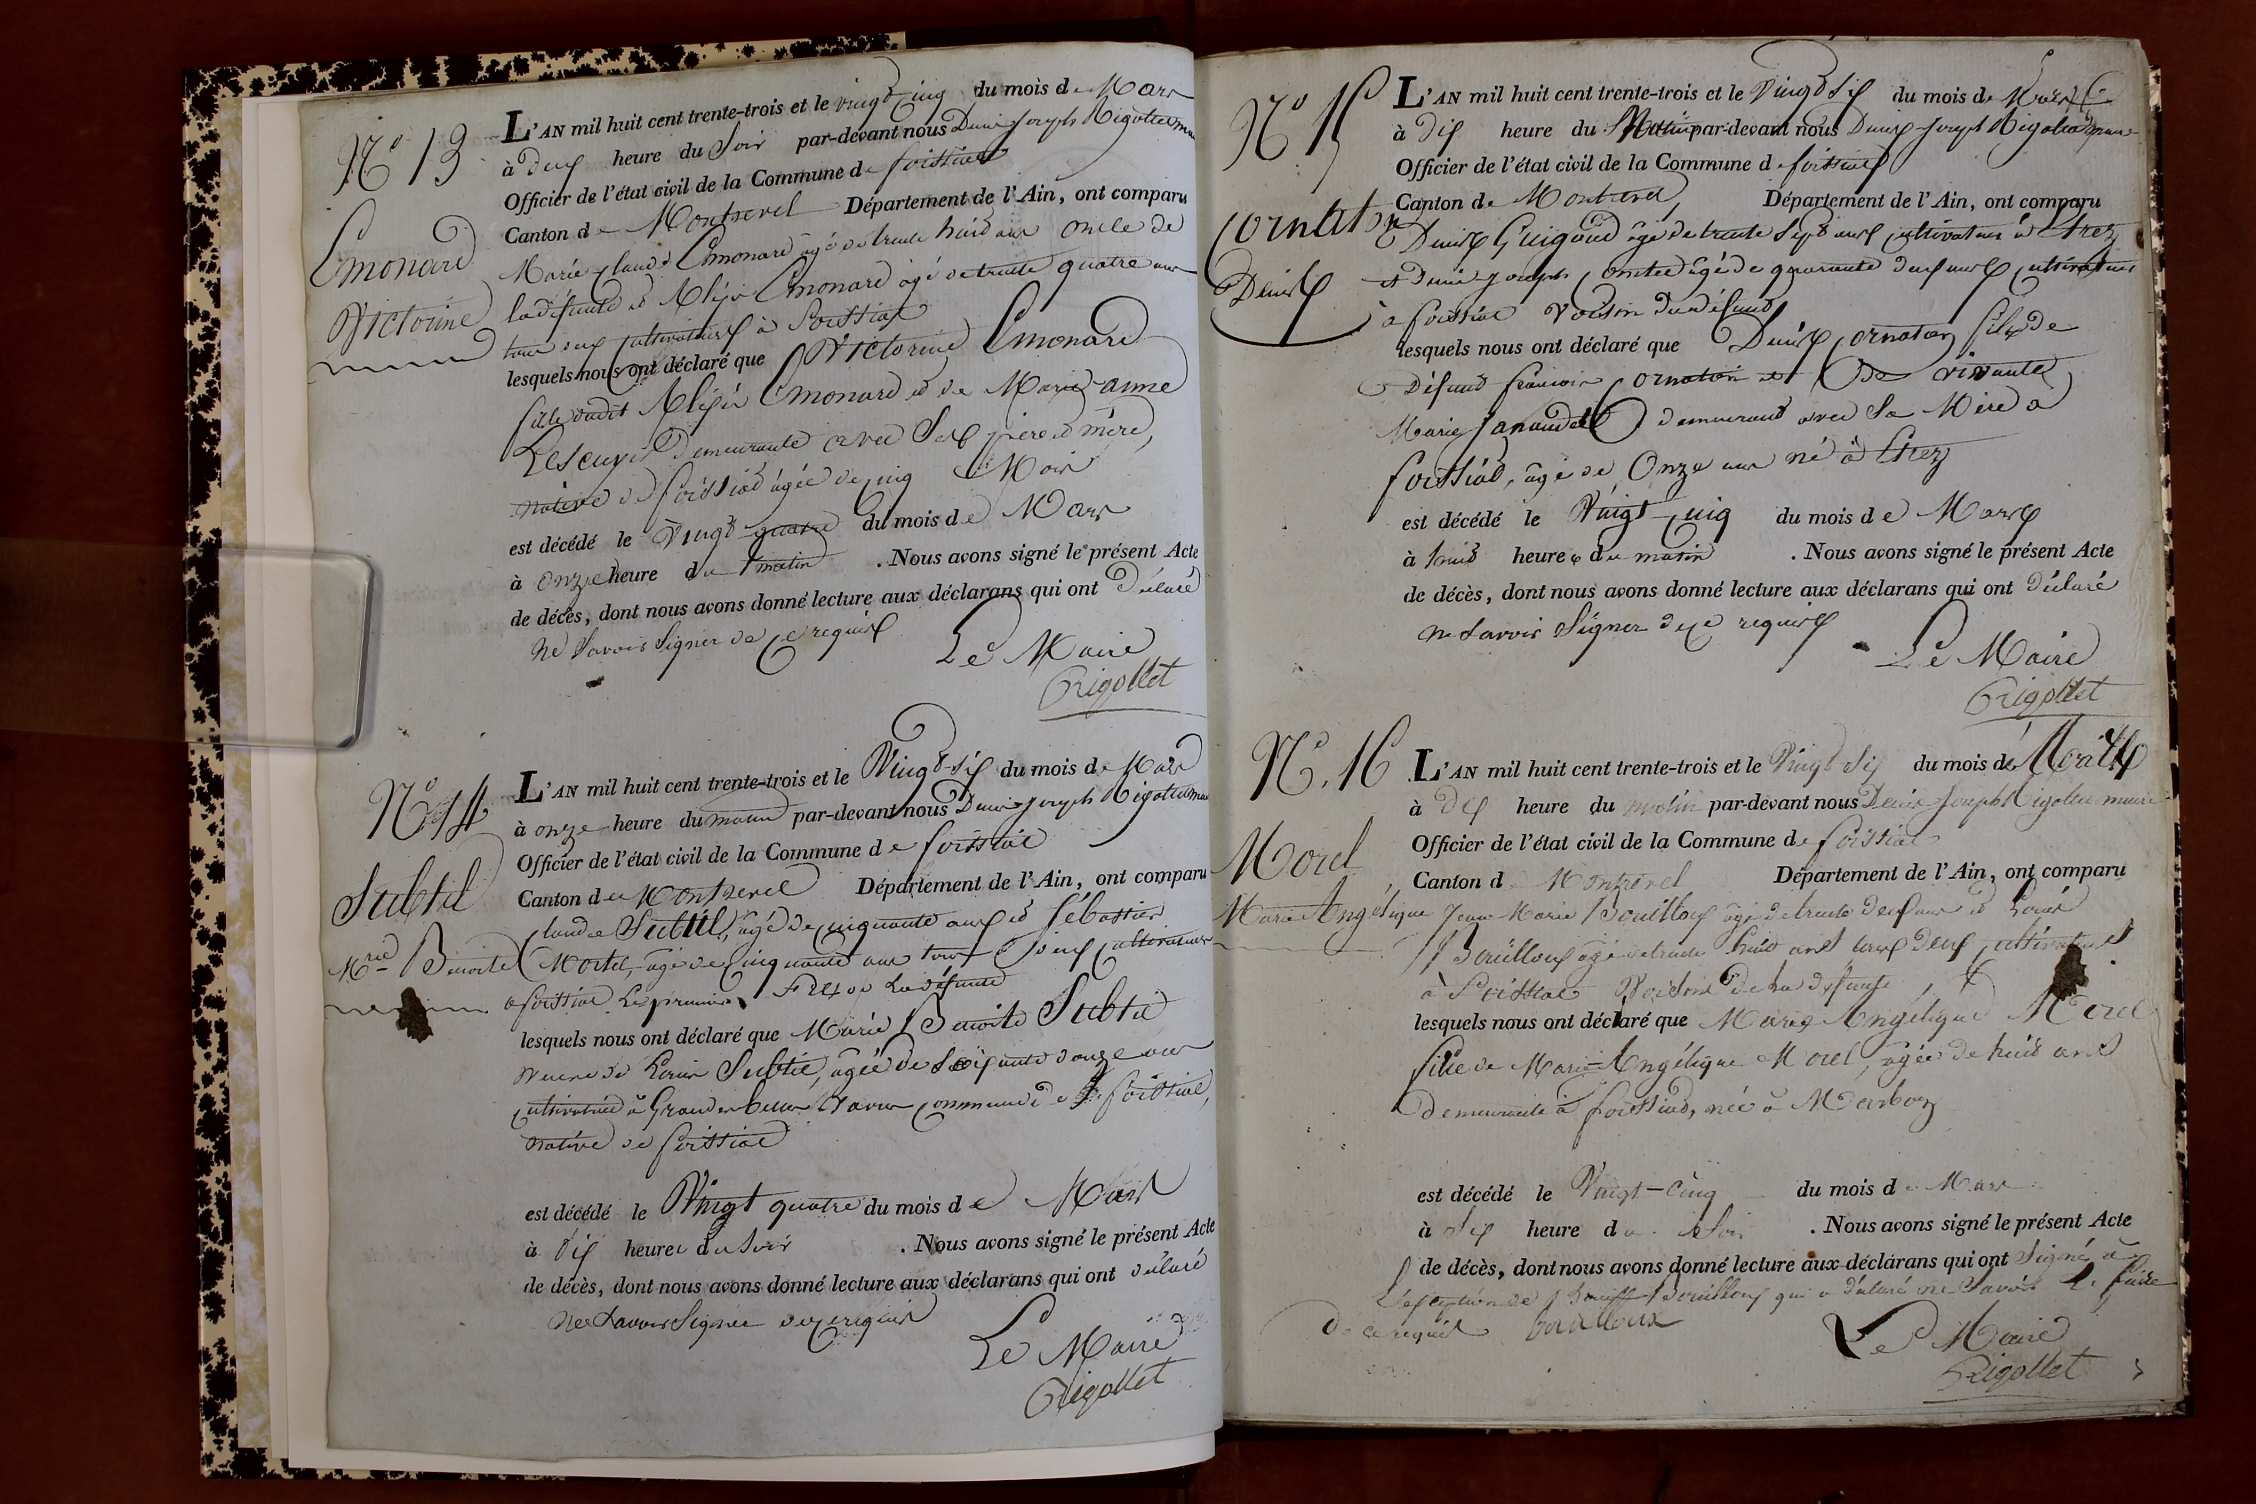 N° 13
Emonard
Victorine
L'AN mil huit cent trente-trois et le vingt cinq du mois de Mars
à deux heure du Soir par-devant nous Denis Joseph Rigollet maire
Officier de l'état civil de la Commune de foissiat
Canton de Montrevel Département de l'Ain, ont comparu
Marie Claude Emonard âgé de trente huit ans oncle de
la défunte et Aléxis Emonard âgé de trente quatre ans
tous deux cultivateurs à foissiat
lesquels nous ont déclaré que Victorine Emonard
fille dudit Aléxis Emonard et de Marie-anne
demeurante avec Ses père et mère,
native de foissiat âgée de cinq Mois
est décédé le vingt quatre du mois de Mars
à onze heure du matin . Nous avons signé le présent Acte
de décès, dont nous avons donné lecture aux déclarans qui ont déclaré
Ne Savoir Signer de ce requis
Le Maire
Rigollet
N° 14
Subtil
Mrie Benoite
L'AN mil huit cent trente-trois et le Vingt-Six du mois de Mars
à onze heure du matin par-devant nous Denis Joseph Rigollet maire
Officier de l'état civil de la Commune de foissiat
Canton de Montrevel Département de l'Ain, ont comparu
Claude Subtil, âgé de cinquante ans et Sébastien
Mortel, âgé de Cinquante ans tous deux cultivateurs
à foissiat Le premier de La défunte
lesquels nous ont déclaré que Marie Benoite Subtil
veuve de Louis Subtil, âgée de Soixante douze ans
cultivatrice à commune de foissiat,
native de foissiat
est décédé le Vingt quatre du mois de Mars
à dix heure du Soir . Nous avons signé le présent Acte
de décès, dont nous avons donné lecture aux déclarans qui ont déclaré
Ne Savoir Signer de ce requis
Le Maire
Rigollet
N° 15
Cornaton
Denis
L'AN mil huit cent trente-trois et le Vingt Six du mois de Mars
à dix heure du Matin par-devant nous Denis Joseph Rigollet maire
Officier de l'état civil de la Commune de foissiat
Canton de Montrevel Département de l'Ain, ont comparu
Denis Guigaud âgé de trente Sept ans cultivateur à Etrez
et Denis Joseph âgé de quarante deux ans cultivateur
à foissiat Voisin du défunt
lesquels nous ont déclaré que Denis Cornaton fils de
Défunt françois Cornaton et De vivante
Marie demeurant avec Sa Mère à
foissiat, âgé de Onze ans né à Etrez
est décédé le Vingt cinq du mois de Mars
à huit heure du matin . Nous avons signé le présent Acte
de décès, dont nous avons donné lecture aux déclarans qui ont déclaré
ne Savoir Signer de ce requis
Le Maire
Rigollet
N°. 16
Morel
Marie Angélique
L'AN mil huit cent trente-trois et le Vingt Six du mois de Mars
à dix heure du matin par-devant nous Denis Joseph Rigollet maire
Officier de l'état civil de la Commune de foissiat
Canton d Montrevel Département de l'Ain, ont comparu
Jean Marie Bouilloux âgé de trente deux ans et Louis
Bouilloux âgé de trente huit ans tous deux cultivateurs
à foissiat Voisins de La défunte
lesquels nous ont déclaré que Marie Angélique Morel
fille de Marie Angélique Morel, âgée de huit ans
demeurante à foissiat, née à Marboz
est décédé le Vingt-cinq du mois de Mars
à Six heure du Soir . Nous avons signé le présent Acte
de décès, dont nous avons donné lecture aux déclarans qui ont Signé à
L'exception de Bouilloux qui a déclaré ne Savoir Le faire
De ce requis bouilloux
Le Maire
Rigollet